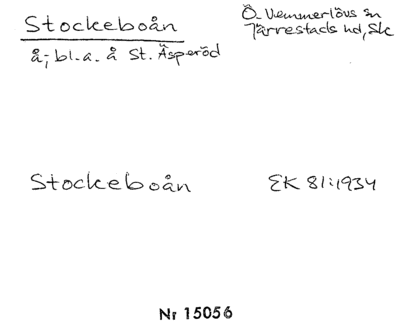 Stockeboån
Ö. Vemmerlövs sn
Järrestads hd, Sk
å; bl.a. å St. Äsperöd
Stockeboån
EK 81:1934
Nr 15056